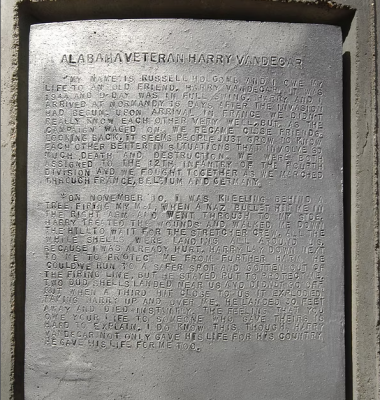 ALABAMA VETERAN HARRY VANDEGAR
"MY NAME IS RUSSELL HOLCOMB AND I OWE MY
LIFE TO AN OLD FRIEND, HARRY VANDEGAR. IT WAS
1944 AND D-DAY WAS IN FULL SWING. HARRY AND I
ARRIVED AT NORMANDY 15 DAYS AFTER THE INVASION
HAD BEGUN. UPON ARRIVAL IN FRANCE WE DIDN'T
REALLY KNOW EACH OTHER VERY WELL, BUT AS THE
CAMPAIGN WAGED ON, WE BECAME CLOSE FRIENDS.
LOOKING BACK, IT SEEMS PEOPLE JUST GROW TO KNOW
EACH OTHER BETTER IN SITUATIONS THAT INVOLVE SO
MUCH DEATH AND DESTRUCTION. WE WERE BOTH
ASSIGNED TO THE 12TH INFANTRY OF THE FOURTH
DIVISION AND WE FOUGHT TOGETHER AS WE MARCHED
THROUGH FRANCE, BELGIUM AND GERMANY.
"ON NOVEMBER 10, I WAS KNEELING BEHIND A
TREE FIRING MY M-1, WHEN A NAZI BULLET HIT ME IN
THE RIGHT ARM AND WENT THROUGH TO MY SIDE.
HARRY DRESSED MY WOUNDS AND WALKED ME DOWN
THE HILL TO WAIT FOR THE STRETCHER CREW. ALL THE
WHILE SHELLS WERE LANDING ALL AROUND US.
BECAUSE I WAS ALREADY HURT, HARRY LAY DOWN NEXT
TO ME TO PROTECT ME FROM FURTHER HARM. HE
COULD'VE RUN TO A SAFER SPOT AND GOTTEN OUT OF
THE FIRING LINE, BUT HE STAYED BUT TO PROTECT ME.
TWO DUD SHELLS LANDED NEAR US AND DIDN'T GO OFF
BUT WHEN A THIRD HIT CLOSE TO US IT EXPLODED
TAKING HARRY UP AND OVER ME. HE LANDED 30 FEET
AWAY AND DIED INSTANTLY. THE FEELING THAT YOU
OWE YOUR LIFE TO SOMEONE WHO GAVE THEIRS IS
HARD TO EXPLAIN. I DO KNOW THIS THOUGH HARRY
VANDEGAR NOT ONLY GAVE HIS LIFE FOR HIS COUNTRY,
HE GAVE HIS LIFE FOR ME TOO.